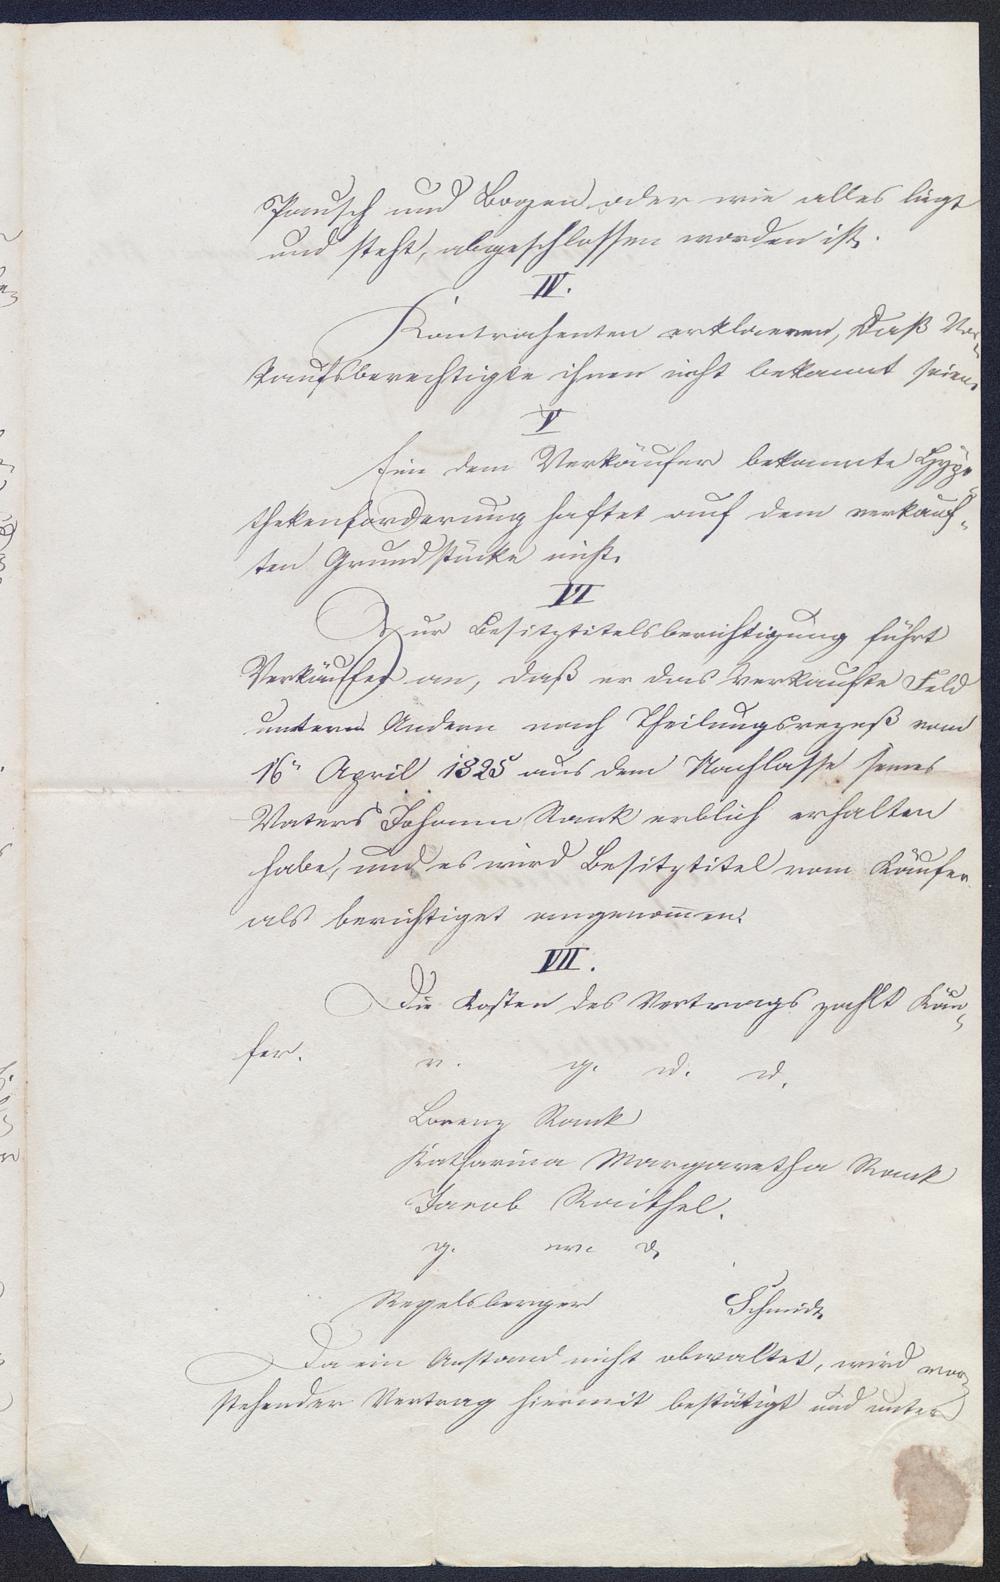 Pausch und Bogen oder wie alles liegt
und steht, abgeschlossen worden ist.
IV.
Kontrahenten erklaeren, daß Vor-
kaufsberechtigte ihnen nicht bekannt seien.
V
Eine dem Verkäufer bekannte Hypo-
thekenforderung haftet auf dem verkauf-
ten Grundstücke nicht.
VI
Zur Besitztitelsberichtigung führt
Verkäufer an, daß er das verkaufte Feld
unterm Andern nach Theilungsrezeß vom
16n April 1825 aus dem Nachlasse seines
Vaters Johann Rank erblich erhalten
habe, und es wird Besitztitel vom Käufer
als berichtiget angenommen.
VII.
Die Kosten des Vertrags zahlt Käu-
fer.
v. g. u. u.
Lorenz Rank
Katharina Margaretha Rank
Jacob Raithel.
g. w. o.
Regelsberger Schmidt
Da ein Anstand nicht obwaltet, wird vor-
stehender Vertrag hiermit bestätigt und unter